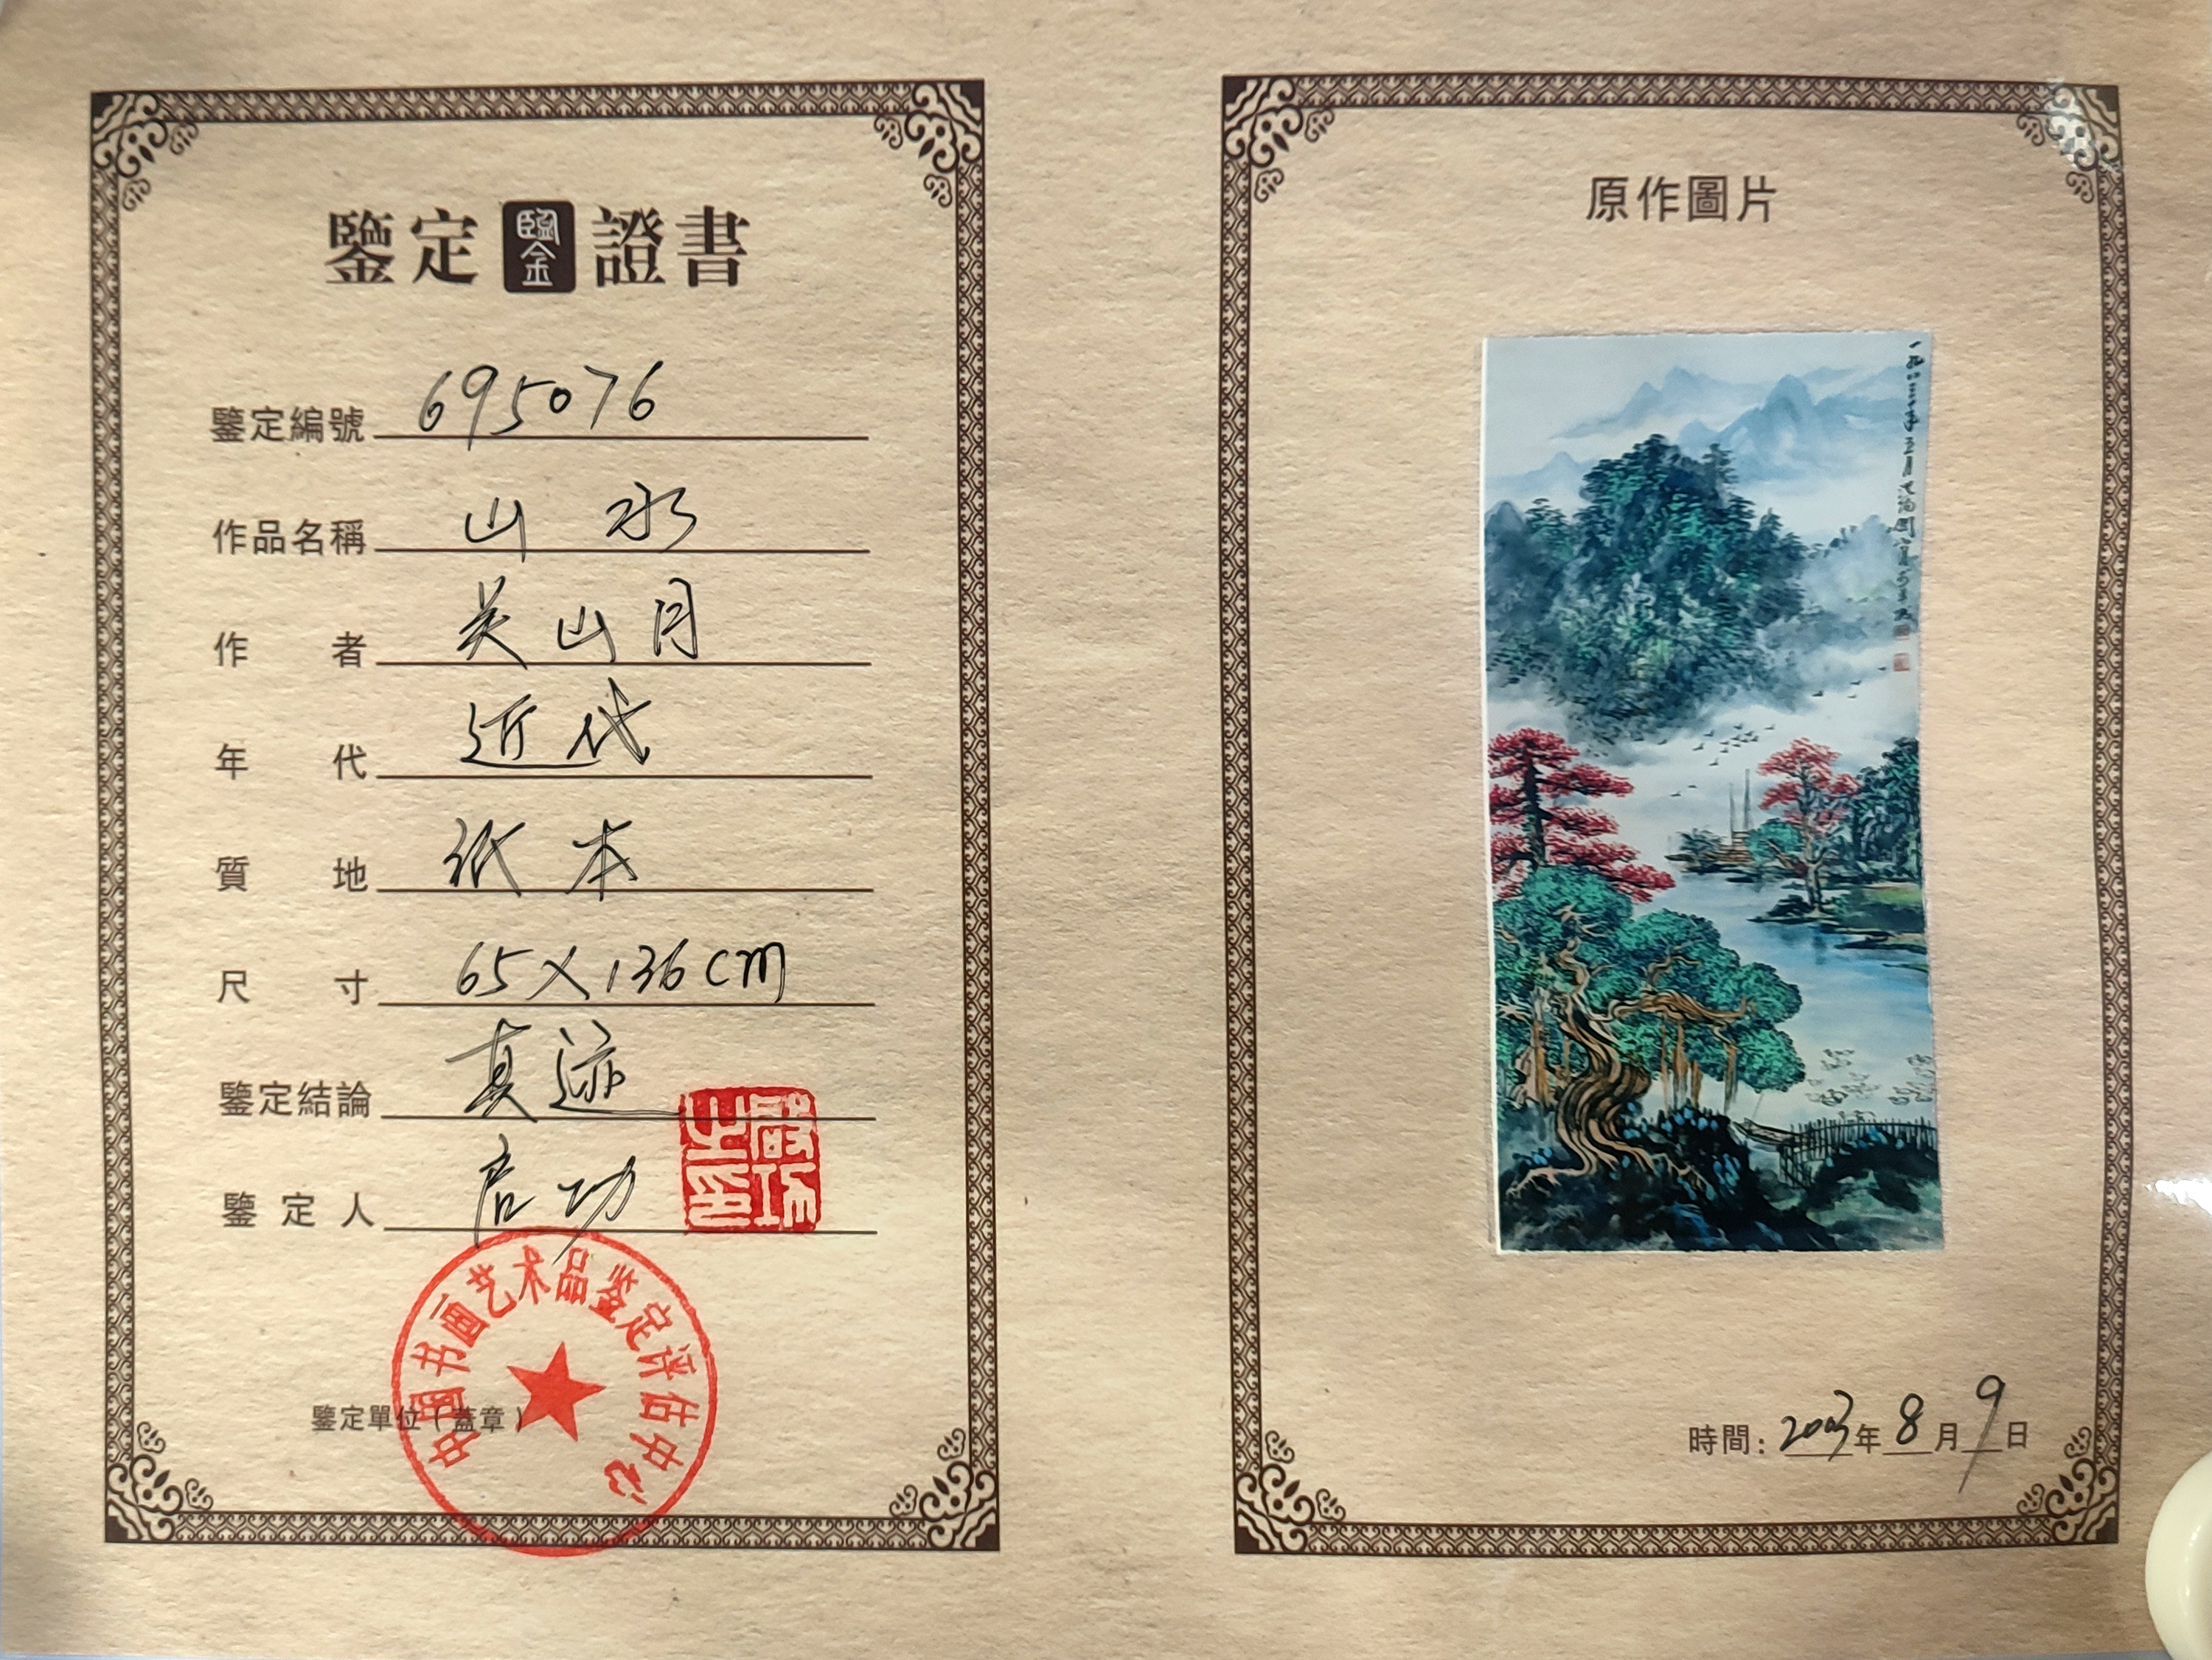 鑒定 鑒 證書
鑒定編號 695076
作品名稱 山水
作者 关山月
年代 近代
質地 紙本
尺寸 65×136cm
鑒定結論 真迹
鑒定人 启功
啟功之印
中国书画艺术品鉴定评估中心
鑒定單位(蓋章)
原作圖片
一九八三年五月
時間:2003年8月9日